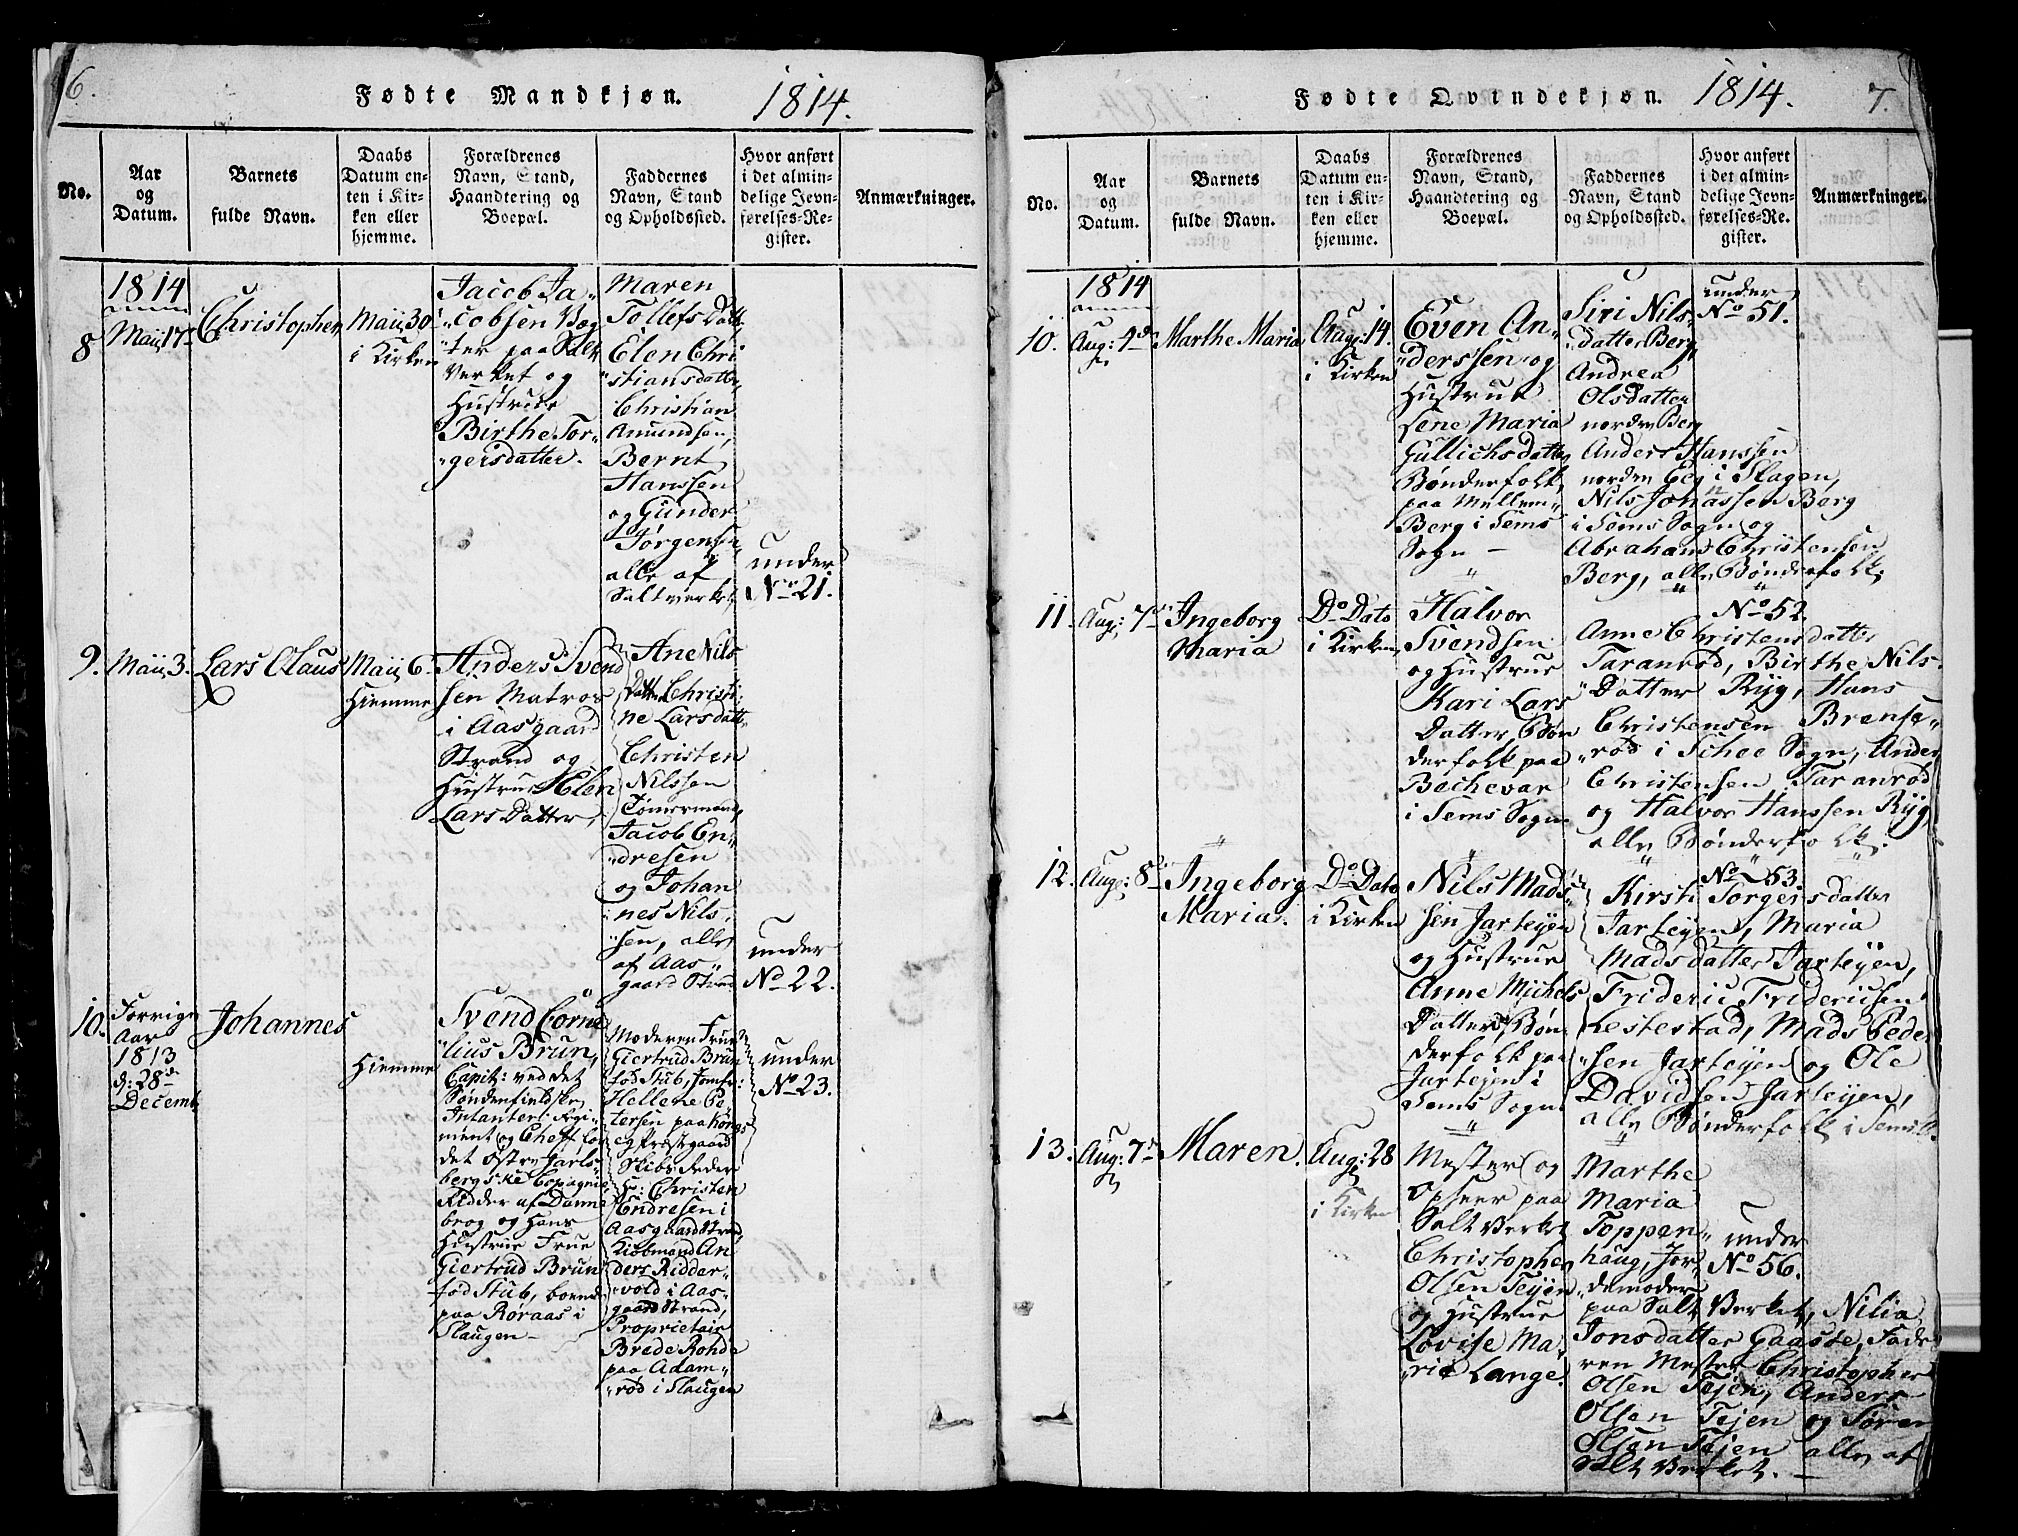 6.
Fødte Mandkjøn.
1814.
No.
Aar
og
Datum.
Barnets
fulde Navn.
Daabs
Datum en-
ten i Kir-
ken eller
hjemme.
Forældrenes
Navn, Stand,
Haandtering og
Boepæl.
Faddernes
Navn, Stand
og Opholdssted.
Hvor anført
i det almin-
delige Jevn-
førelses-Re-
gister.
Anmærkninger.
8
1814
Maij 17
Christopher
Maij 30
i Kirken
Jacob Ja-
cobsen Bøg
ter paa Salt
Verket og
Hustrue
Birthe Tor-
gersdatter.
Maren
Tollefs Datt
Elen Chri
stiansdatter
Christian
Amundsen,
Bernt
Hanssen
og Gunder
Jørgensen
alle af
Saltverket
under
No 21.
9.
Maij 3.
Lars Olaus
Maij 6.
Hiemme
Anders Svend
sen Matros
i Aasgaard
Strand og
Hustrue Helen
Lars Datter,
Ane Nils
Datter Christi
ne Larsdatt
Christen
Nilssen
Tømermand,
Jacob En-
dresen
og Johan
nes Nils,
sen, alle
af Aas-
gaard Strand
under
No 22.
10.
Forrige
Aar
1813
d: 28de
Decemb
Johannes
Hiemme
Svend Corne
lius Brun,
Capit: ved det
Søndenfieldske
Infanteri Regi-
ment og Cheff for
det østre Jarls-
bergske Copagnie
Ridder af Danne
brog og Hans
Hustrue Frue
Giertrud Brun
fød Stub, boende
paa Røraas i
Slaugen-
Moderen Frue
Giertrud Brun
fød Stub, Jomfr:
Hellene Pe-
tersen paa
Præstgaard
Skibs Reder
Hr: Christen
Endresen i
Aasgaard Strand
Kiøbmand An
ders Ridder-
vold i Aas-
gaard Strand,
Proprietair
Brede Rohde
paa Adam-
rød i Slaugen
under
No 23.
Fødte Qvindekjøn.
1814.
7.
No.
Aar
og
Datum.
Barnets
fulde Navn.
Daabs
Datum en-
ten i Kir-
ken eller
hjemme.
Forældrenes
Navn, Stand,
Haandtering og
Boepæl.
Faddernes
Navn, Stand
og Opholdssted.
Hvor anført
i det almin-
delige Jevn-
førelses-Re-
gister.
Anmærkninger.
10.
1814
Aug: 4de
Marthe Maria
Aug: 14.
i Kirken
Even An-
derssen og
Hustrue
Lene Maria
Gullichsdatter
Bønderfolk
paa Mellem-
Berg i Sems
Sogn -
Siri Nils-
datter Berg,
Andrea
Olsdatter
norden Berg
Anders Hanssen
norden Eeg i Slagen,
Nils Jonassen Berg
i Sems Sogn og
Abraham Christensen
Berg, alle Bønderfolk.
under
No 51.
11.
Aug: 7de
Ingeborg
Maria
Do Dato
i Kirken
Halvor
Svendsen
og Hustrue
Kari Lars
Datter, Bøn
derfolk paa
Bechevar
i Sems Sogn
No 52
Anne Christensdatter
Taranrød, Birthe Nils-
Datter Ryg, Hans
Christensen Brense-
rød i Schee Sogn, Ander
Christensen Taranrød
og Halvor Hanssen Ryg
alle Bønderfolk.
12.
Aug: 8de
Ingeborg
Maria.
Do Dato
i Kirken
Nils Mads-
sen Jarteyen
og Hustrue
Anne Michels
Datter, Bøn
derfolk paa
Jarteyen i
Sems Sogn
No 53.
Kirsti Torgersdatter
Jarteyen, Maria
Madsdatter Jarteyen,
Frideric Fridericsen
Lesterstad, Mads Peder
sen Jarteyen og Ole
Davidsen Jarteyen,
alle Bønderfolk i Sems S.
13.
Aug: 7de
Maren.
Aug: 28
i Kirken
Mester og
Opseer paa
Salt Verket
Christopher
Olsen Tejen
og Hustrue
Lovise Ma-
rie Lange.
Marthe
Maria
Toppen-
haug, Jor-
demoder
paa Salt Verket, Nilia
Jonsdatter Gaasøe, Fade
ren Mester Christopher
Olsen Tejen, Anders
Olsen Tejen og Søren
Olsen Tejen alle af
Salt Verket. -
under
No 56.